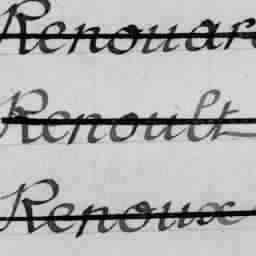 Renouar
Renoult
Renoux